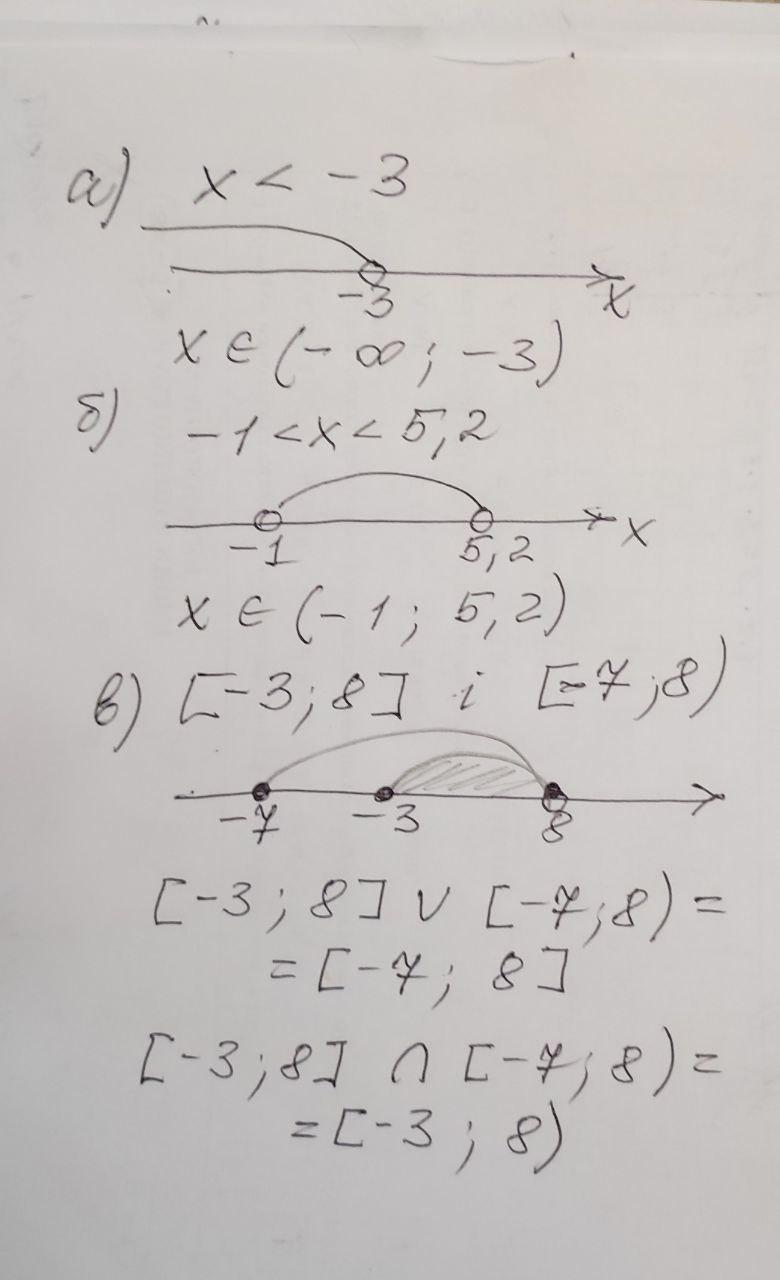 а) x < -3
-3 x
x ∈ (-∞; -3)
б) -1 < x < 5,2
-1 5,2 x
x ∈ (-1; 5,2)
в) [-3; 8] і [-7; 8)
-7 -3 8
[-3; 8] ∪ [-7; 8) =
= [-7; 8]
[-3; 8] ∩ [-7; 8) =
= [-3; 8)